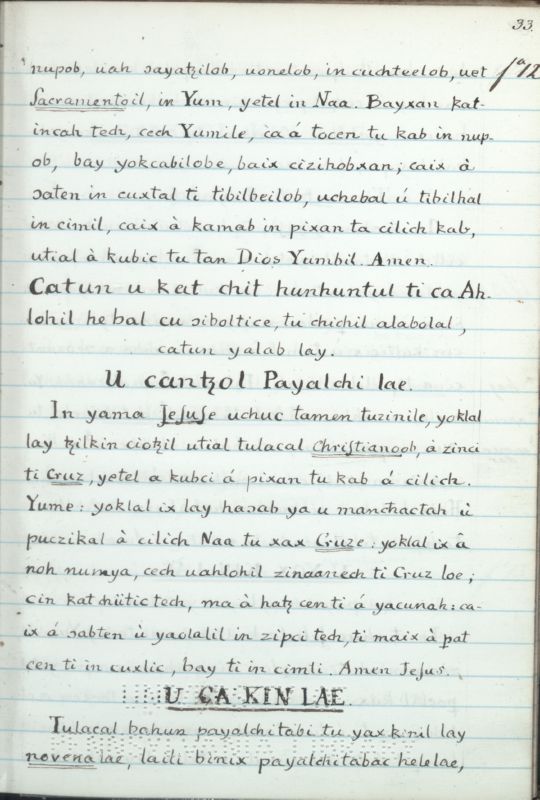 33.
nupob, uah ɔayatꜩilob, uonelob, in cuchteelob, uet fª 12
Sacramentoil, in Yum, yetel in Naa. Bayxan kat-
incah tech, cech Yumile, ca á tocen tu kab in nup-
ob, bay yokcabilobe, baix cizihobxan; caix à
ɔaten in cuxtal ti tibilbeilob, uchebal ú tibilhal
in cimil, caix à kamab in pixan ta cilich kab,
utial à kubic tu tan Dios Yumbil. Amen.
Catun u kat chit hunhuntul ti ca Ah-
lohil he bal cu ɔiboltice, tu chichil alabolal,
catun yalab lay.
U canꜩol Payalchi lae.
In yama Jesuse uchuc tamen tuzinile, yoklal
lay ꜩilkin ciotꜩil utial tulacal Christianoob, à zinci
ti Cruz, yetel a kubci á pixan tu kab á cilich.
Yume: yoklal ix lay haɔab ya u manchactah ù
puczikal à cilich Naa tu xax Cruze: yoklal ix â
noh numya, cech uahlohil zinaanech ti Cruz loe;
cin kat chiitic tech, ma à hatꜩ cen ti á yacunah: ca-
ix á ɔabten ù yaolalil in zipci tech, ti maix à pat
cen ti in cuxlic, bay ti in cimli. Amen Jesus.
U CA KIN LAE
Tulacal bahun payalchitabi tu yax kinil lay
novena lae, laili binix payalchitabac helelae,